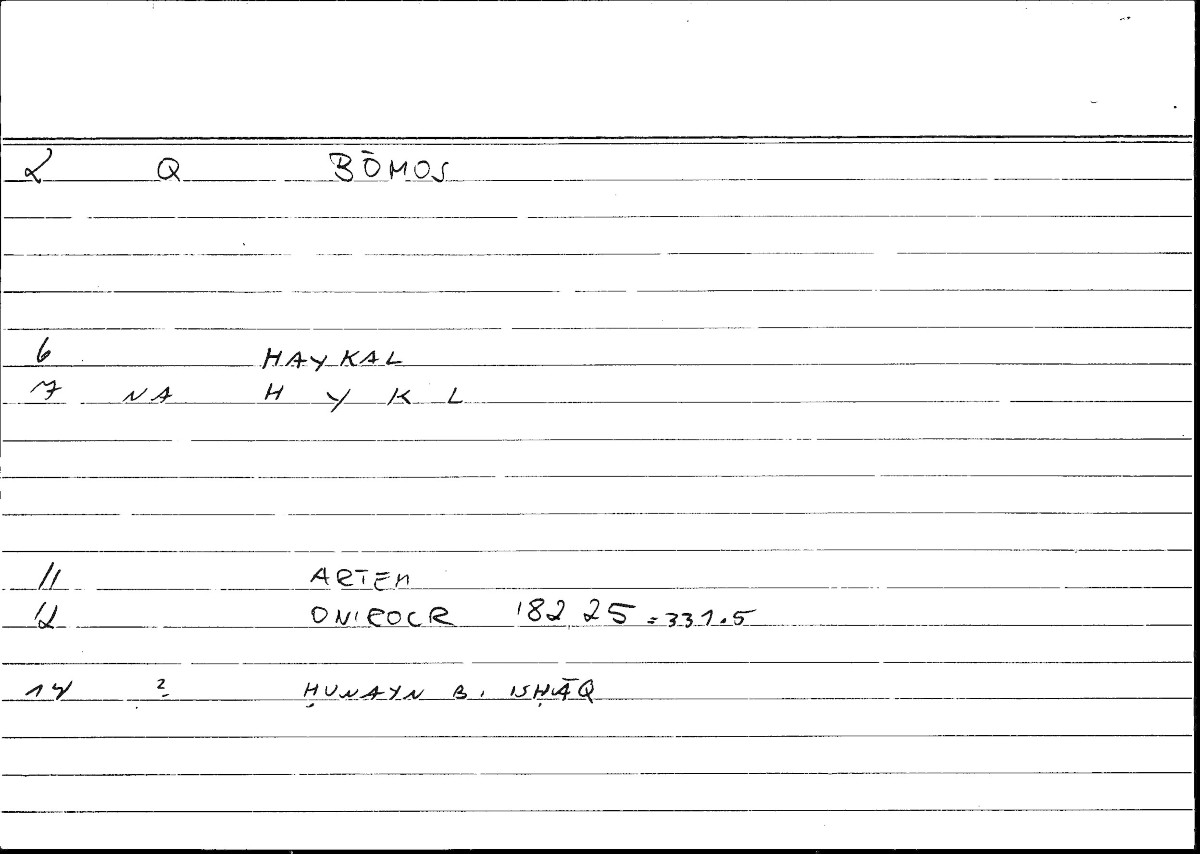 2 Q BŌMOS
6 HAYKAL
7 NA H Y K L
11 ARTEM
12 ONIROCR 182,25 = 331.5
14 ? ḤUNAYN B. ISḤĀQ